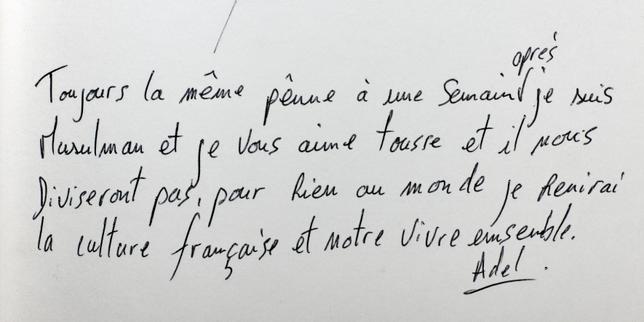 Toujours la même pênne à une Semaine après je suis
Musulman et je vous aime tousse et il nous
Diviseront pas, pour Rien au monde je Renirai
la culture française et notre vivre ensemble.
Adel.